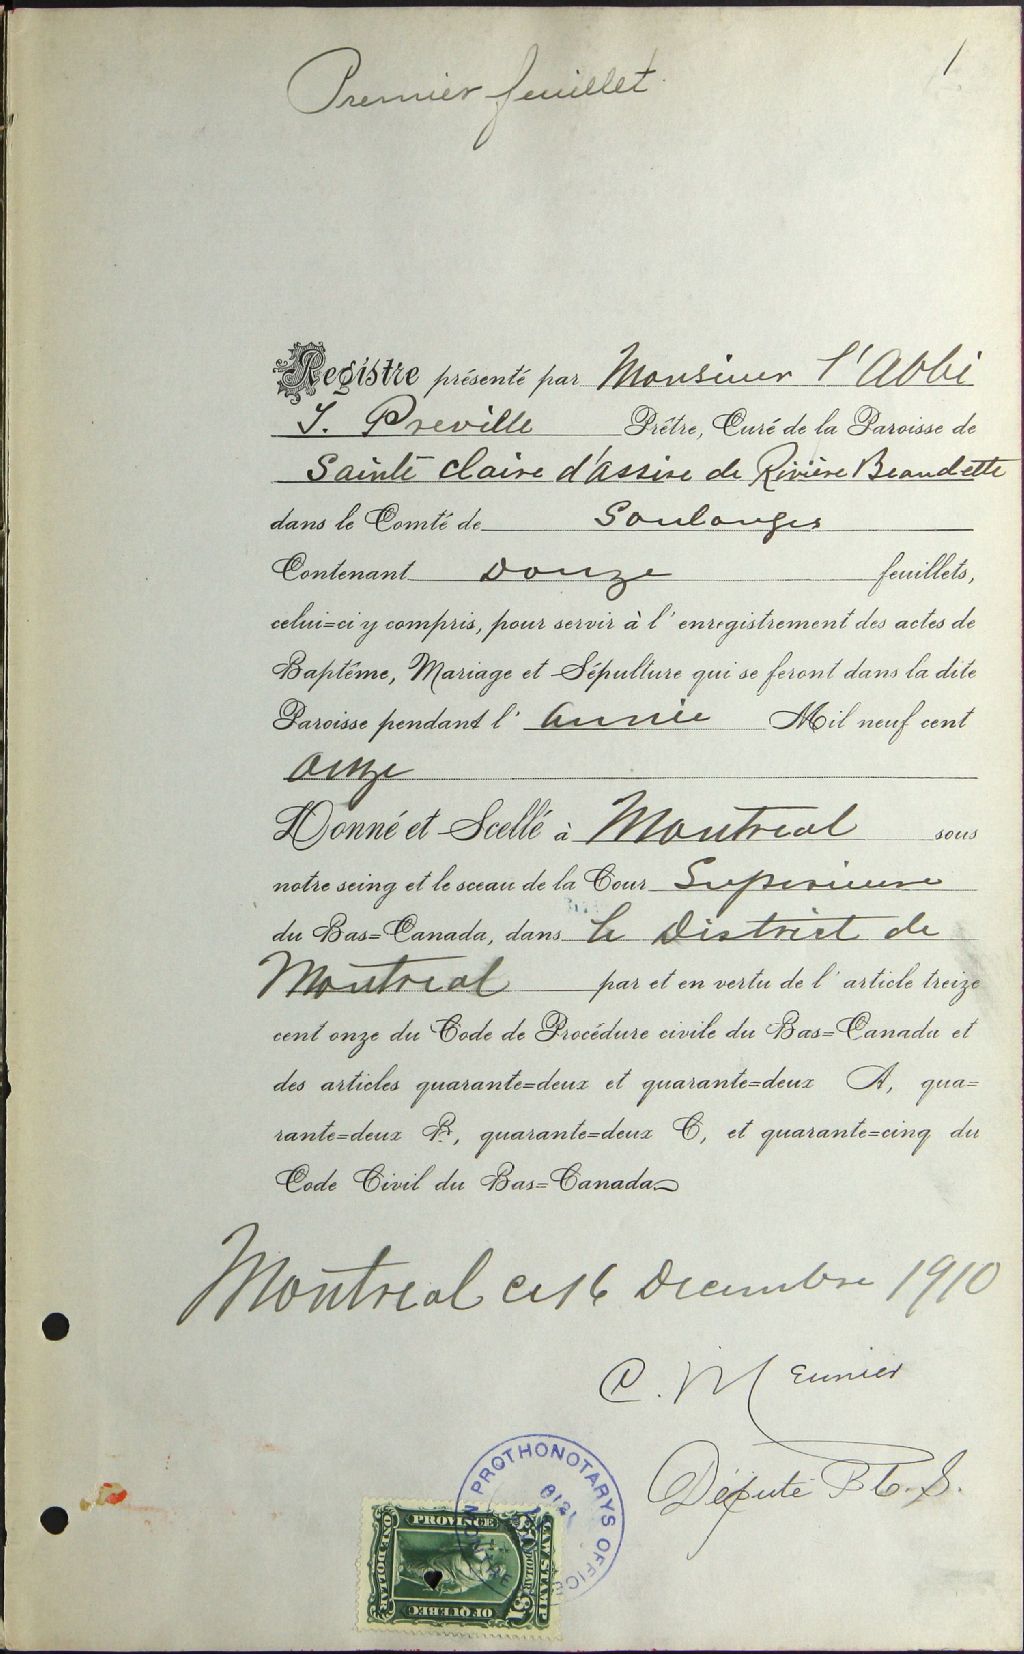 1
Premier feuillet
Registre présenté par Monsieur l'Abbé
J. Preville Prêtre, Curé de la Paroisse de
Sainte Claire d'Assise de Rivière Beaudette
dans le Comté de Soulanges
Contenant Douze feuillets,
celui=ci y compris, pour servir à l'enregistrement des actes de
Baptême, Mariage et Sépulture qui se feront dans la dite
Paroisse pendant l'année Mil neuf cent
onze
Donné et Scellé à Montreal sous
notre seing et le sceau de la Cour Superieure
du Bas=Canada, dans le District de
Montreal par et en vertu de l'article treize
cent onze du Code de Procédure civile du Bas=Canada et
des articles quarante=deux et quarante=deux A, qua=
rante=deux B, quarante=deux C, et quarante=cinq du
Code Civil du Bas=Canada
Montreal ce 16 Decembre 1910
C. Meunier
Député P. C. S.
PROTHONOTARYS OFFICE
PROVINCE
OF QUEBEC
LAW STAMP
ONE DOLLAR
$1